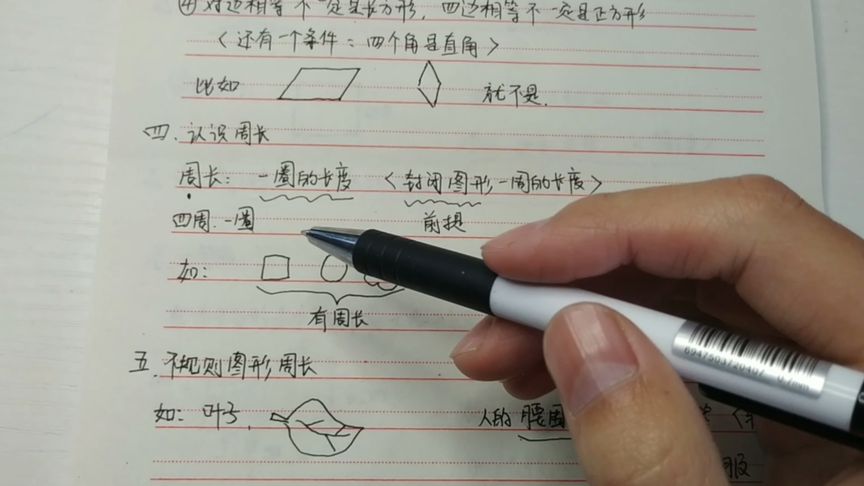 ④对边相等不一定是长方形，四边相等不一定是正方形
＜还有一个条件：四个角是直角＞
比如 就不是.
四.认识周长
周长：一圈的长度 ＜封闭图形一周的长度＞
四周.一圈 前提
如：
有周长
五.不规则图形周长
如：叶子, 人的腰围
服
6947503720407 0.7mm